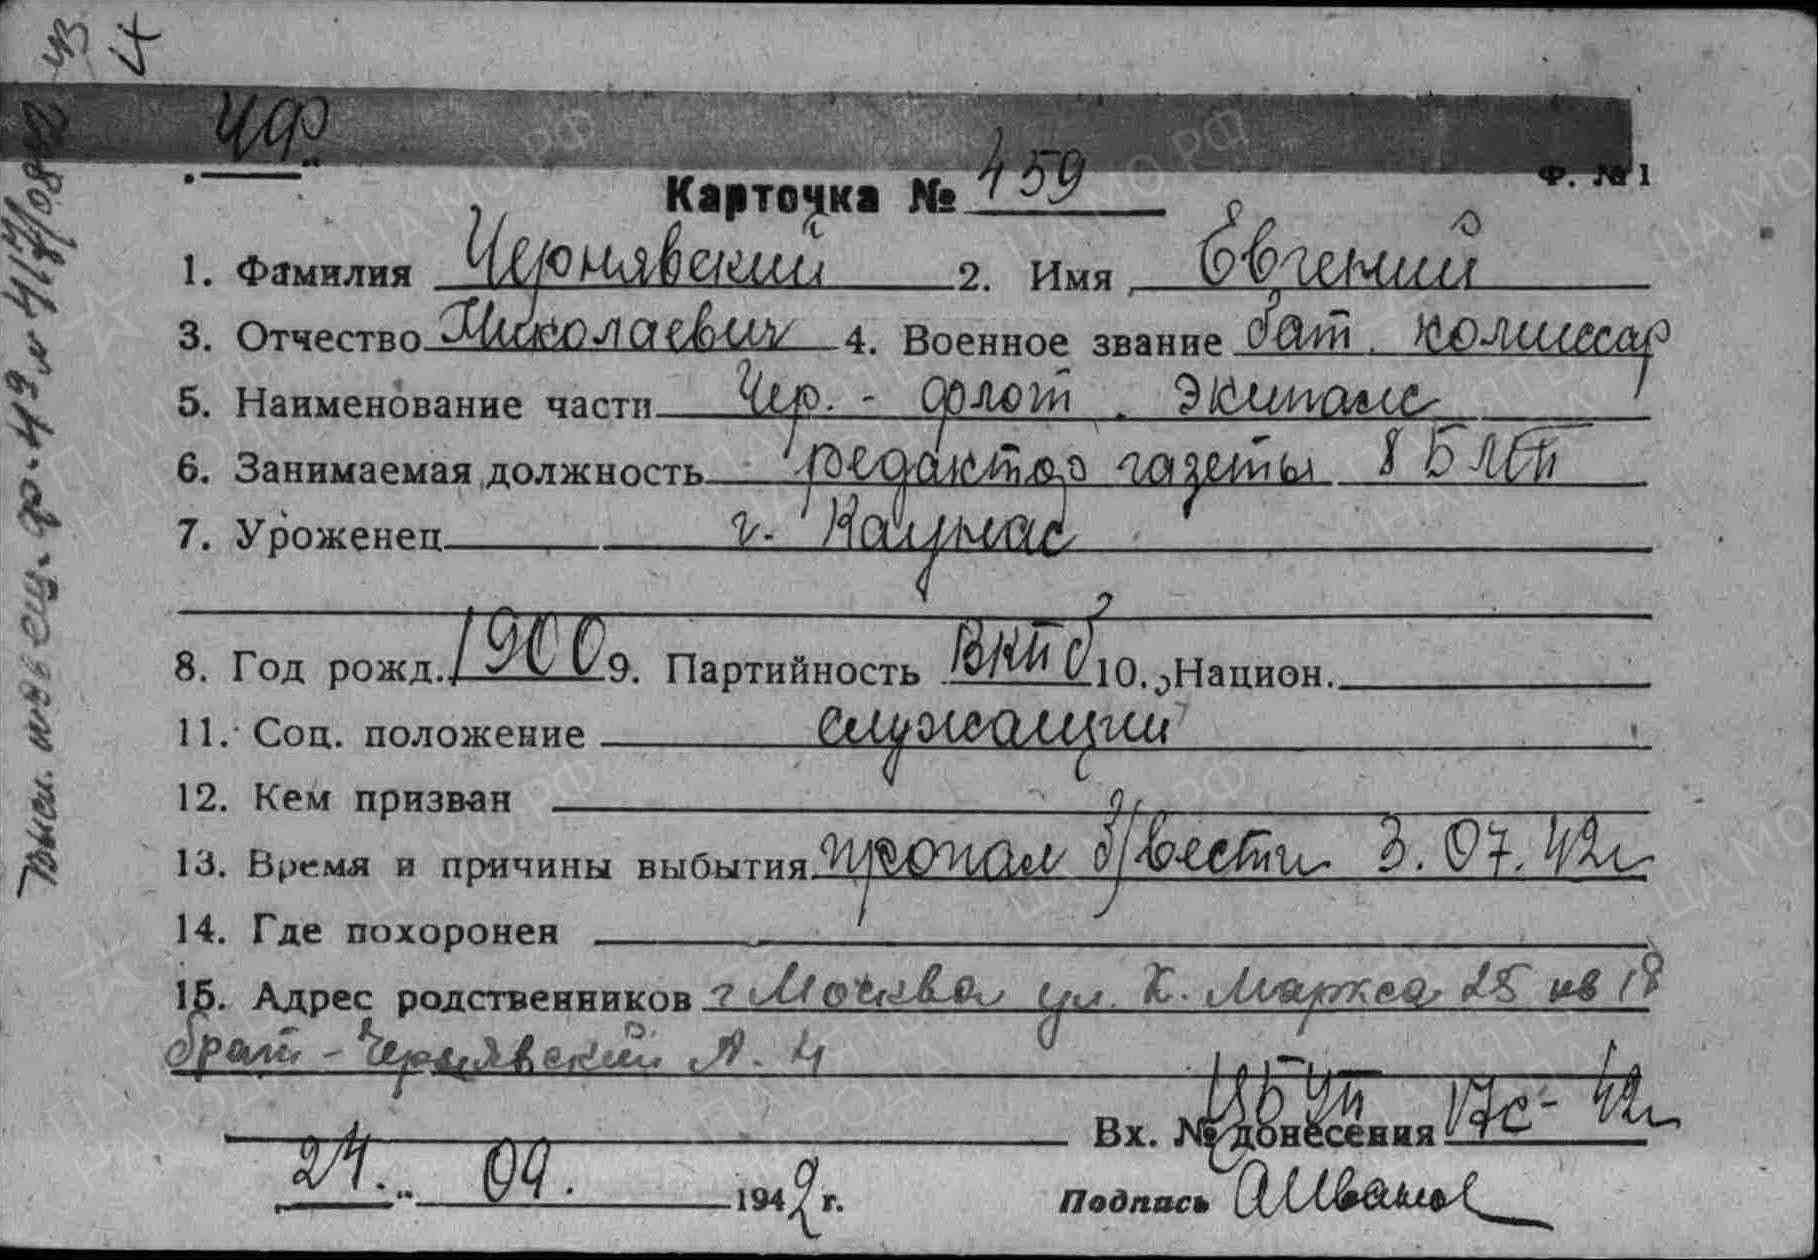 ЧФ
Ф. № 1
Карточка № 459
1. Фамилия Чернявский 2. Имя Евгений
3. Отчество Николаевич 4. Военное звание бат. комиссар
5. Наименование части Чер.- флот. экипаж
6. Занимаемая должность редактор газеты 8 БМП
7. Уроженец г. Каунас
8. Год рожд. 1900 9. Партийность ВКПб 10. Национ.
11. Соц. положение служащий
12. Кем призван
13. Время и причины выбытия пропал б/вести 3.07.42г
14. Где похоронен
15. Адрес родственников г Москва ул. К. Маркса 25 кв 18
брат - Чернявский А. Н
Вх. № донесения 17с - 42г
24. 09. 1942 г. Подпись
Высл. извещ. ф. 4 9